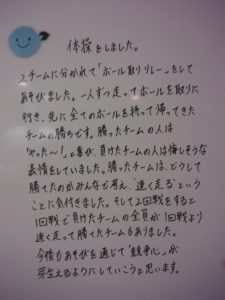 体操をしました。
2チームに分かれて「ボール取りリレー」をして
あそびました。一人ずつ走ってボールを取りに
行き、先に全てのボールを持って帰ってきた
チームの勝ちです。勝ったチームの人は
「やった〜!」と喜び、負けたチームの人は悔しそうな
表情をしていました。勝ったチームは、どうして
勝てたのかみんなで考え、"速く走る"という
ことに気付きました。そして2回戦をすると
1回戦で負けたチームの全員が1回戦より
速く走って勝てたチームもありました。
今後もあそびを通じて"競争心"が
芽生えるようにしていこうと思います。